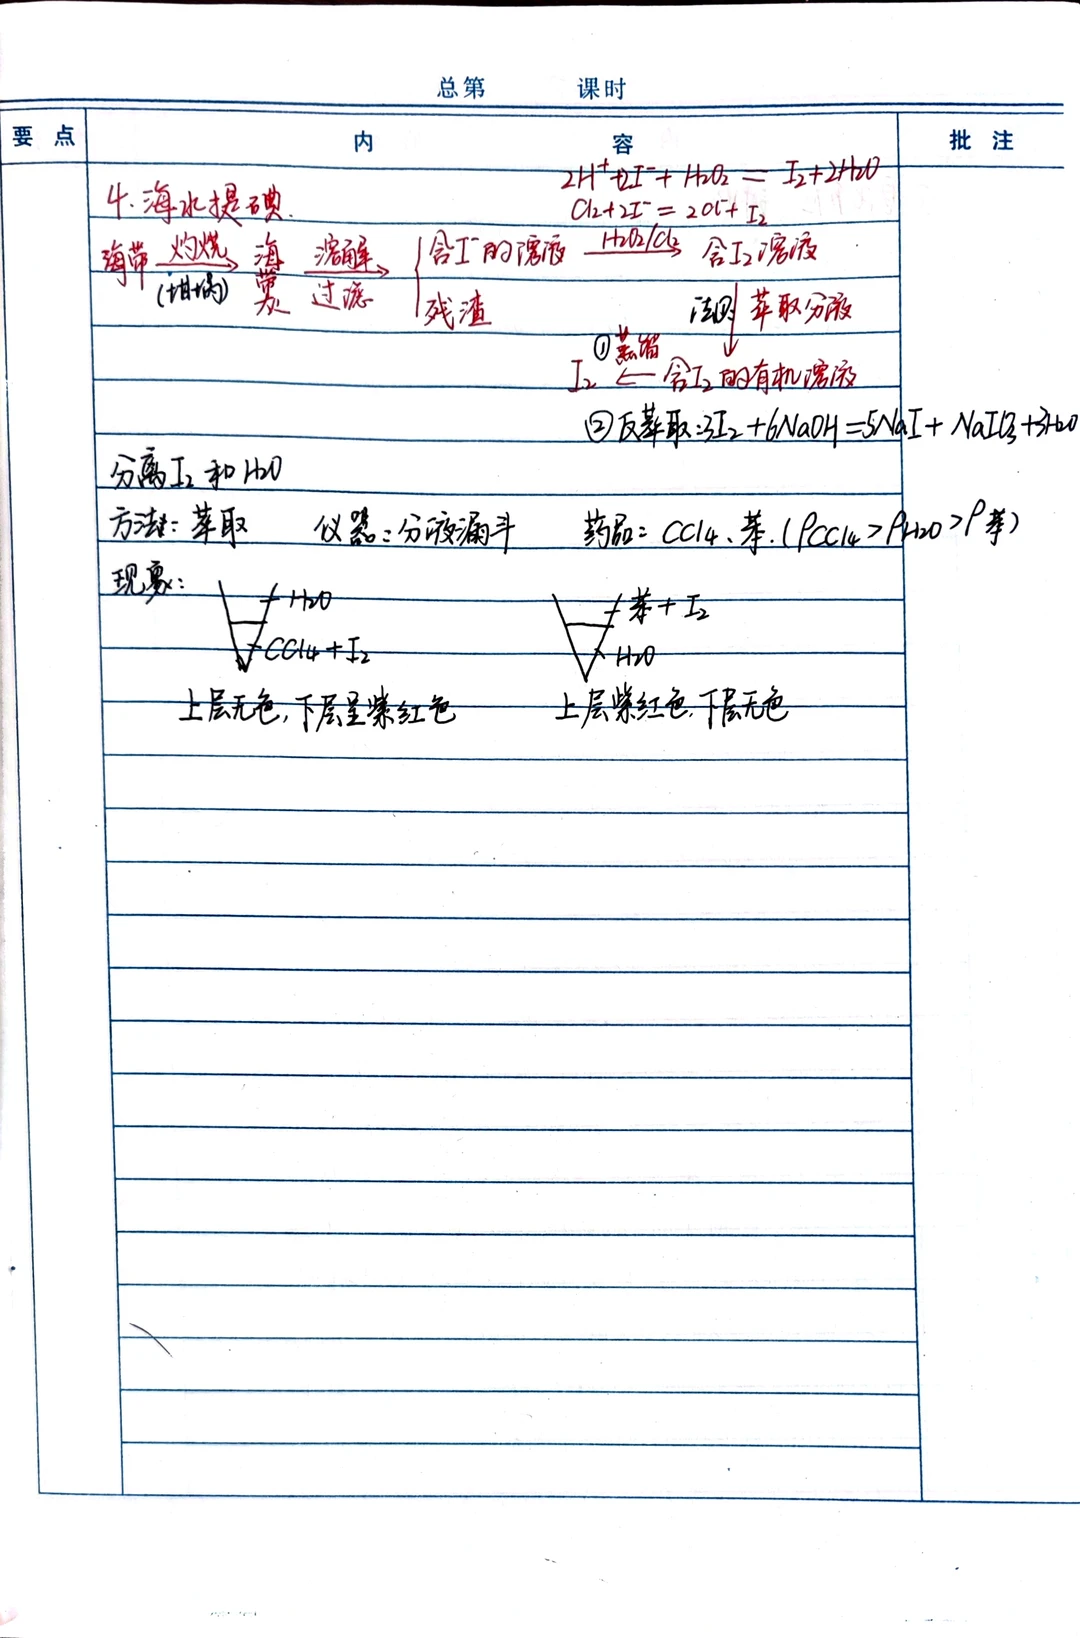 总第 课时
要点 内容 批注
2H⁺+2I⁻+H₂O₂=I₂+2H₂O
4.海水提碘.
Cl₂+2I⁻=2Cl⁻+I₂
海带 灼烧(坩埚)→ 海带灰 溶解过滤→ {含I⁻的溶液 H₂O₂/Cl₂→ 含I₂溶液
残渣
法四: ↓萃取分液
I₂ ←①蒸馏 含I₂的有机溶液
②反萃取:3I₂+6NaOH=5NaI+NaIO₃+3H₂O
分离I₂和H₂O
方法:萃取 仪器:分液漏斗 药品:CCl₄、苯.(ρCCl₄>ρH₂O>ρ苯)
现象:
H₂O 苯+I₂
CCl₄+I₂ H₂O
上层无色,下层呈紫红色 上层紫红色.下层无色